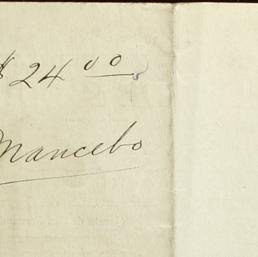 $ 24 00
Mancebo